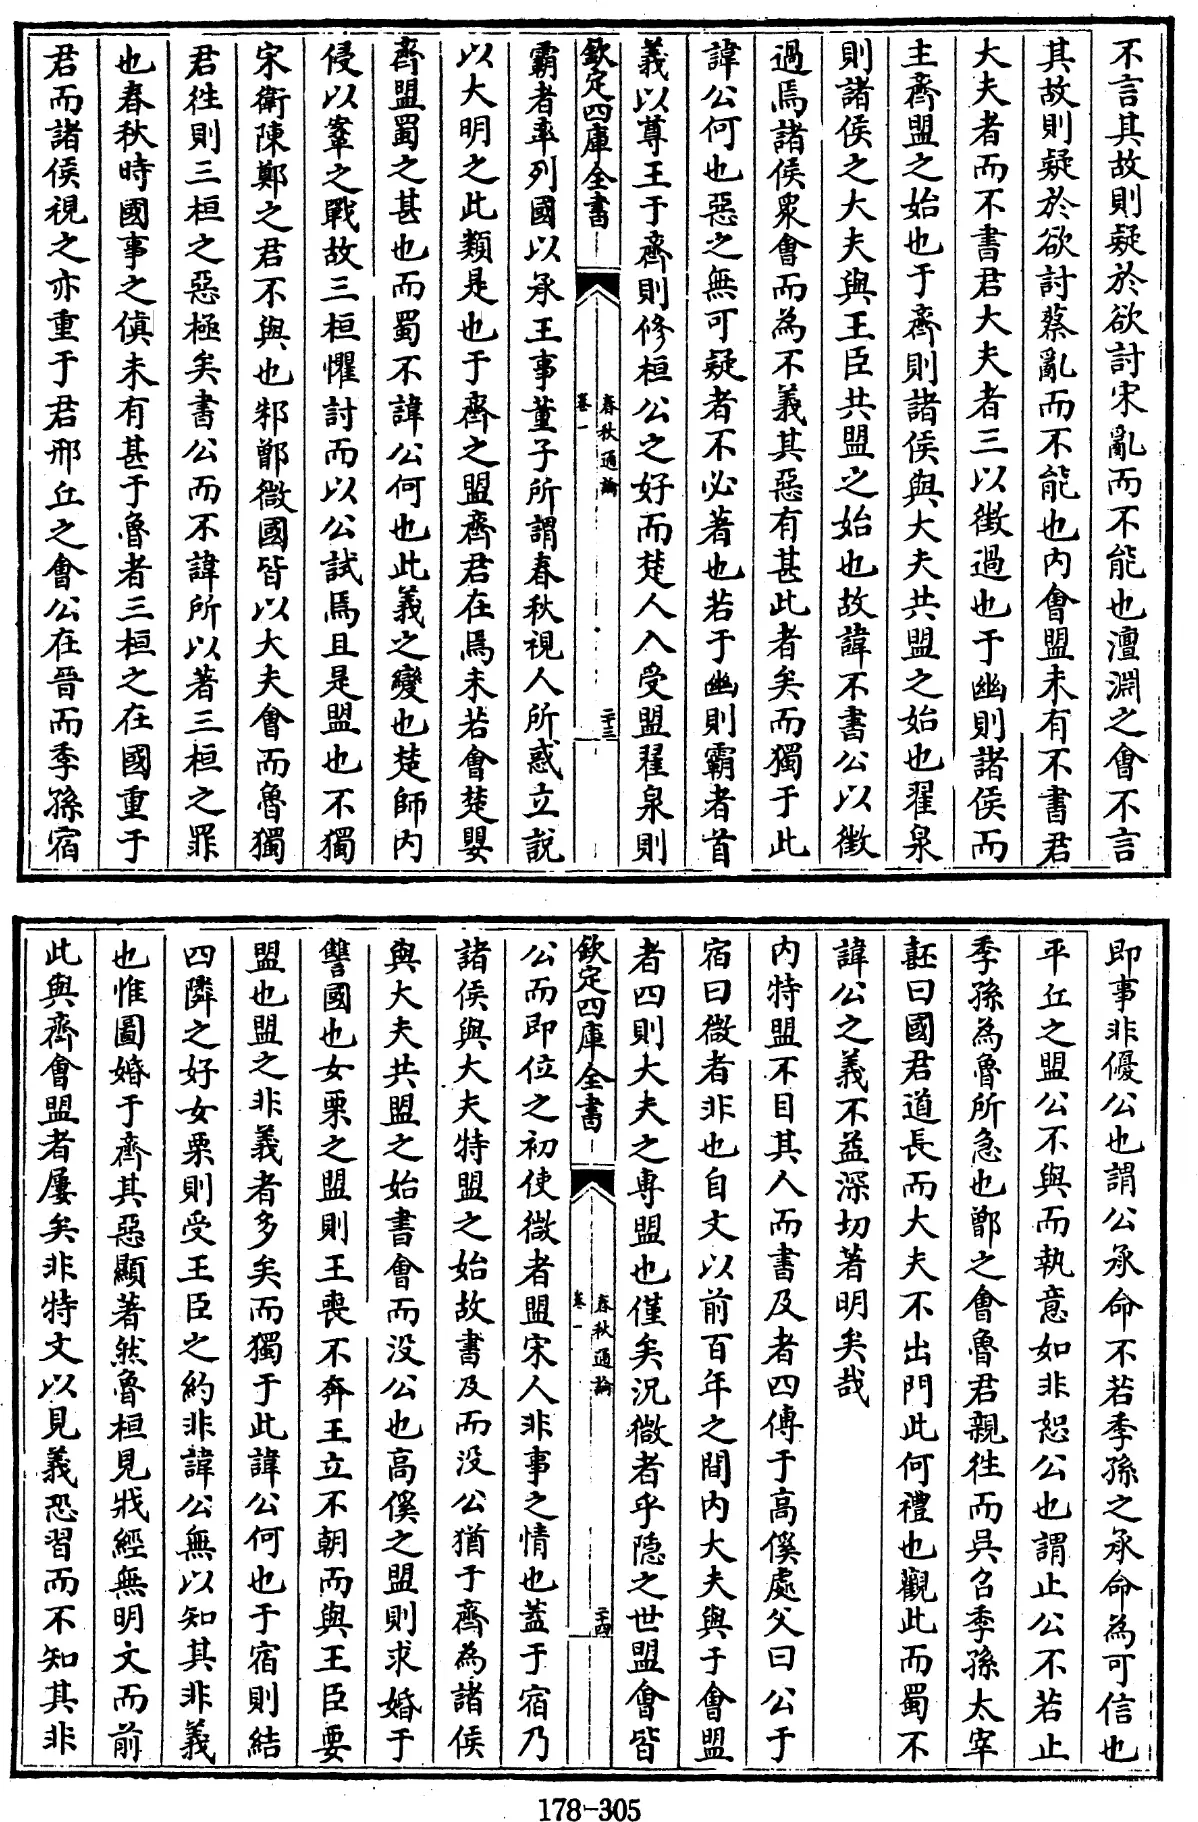 不言其故則疑於欲討宋亂而不能也澶淵之會不言
其故則疑於欲討蔡亂而不能也内會盟未有不書君
大夫者而不書君大夫者三以徴過也于幽則諸侯而
主齊盟之始也于齊則諸侯與大夫共盟之始也翟泉
則諸侯之大夫與王臣共盟之始也故諱不書公以徴
過焉諸侯衆會而為不義其惡有甚此者矣而獨于此
諱公何也惡之無可疑者不必著也若于幽則霸者首
義以尊王于齊則修桓公之好而楚人入受盟翟泉則
欽定四庫全書
春秋通論
卷一
二十三
霸者率列國以承王事董子所謂春秋視人所惑立說
以大明之此類是也于齊之盟齊君在焉未若會楚嬰
齊盟蜀之甚也而蜀不諱公何也此義之變也楚師内
侵以鞌之戰故三桓懼討而以公試焉且是盟也不獨
宋衛陳鄭之君不與也邾鄫微國皆以大夫會而魯獨
君往則三桓之惡極矣書公而不諱所以著三桓之罪
也春秋時國事之傎未有甚于魯者三桓之在國重于
君而諸侯視之亦重于君邢丘之會公在晉而季孫宿
即事非優公也謂公承命不若季孫之承命為可信也
平丘之盟公不與而執意如非恕公也謂止公不若止
季孫為魯所急也鄫之會魯君親往而呉召季孫太宰
嚭曰國君道長而大夫不出門此何禮也觀此而蜀不
諱公之義不益深切著明矣哉
内特盟不目其人而書及者四傅于高傒處父曰公于
宿曰微者非也自文以前百年之間内大夫與于會盟
者四則大夫之專盟也僅矣況微者乎隱之世盟會皆
欽定四庫全書
春秋通論
卷一
二十四
公而即位之初使微者盟宋人非事之情也蓋于宿乃
諸侯與大夫特盟之始故書及而没公猶于齊為諸侯
與大夫共盟之始書會而没公也高傒之盟則求婚于
讐國也女栗之盟則王喪不奔王立不朝而與王臣要
盟也盟之非義者多矣而獨于此諱公何也于宿則結
四隣之好女栗則受王臣之約非諱公無以知其非義
也惟圖婚于齊其惡顯著然魯桓見戕經無明文而前
此與齊會盟者屢矣非特文以見義恐習而不知其非
178-305